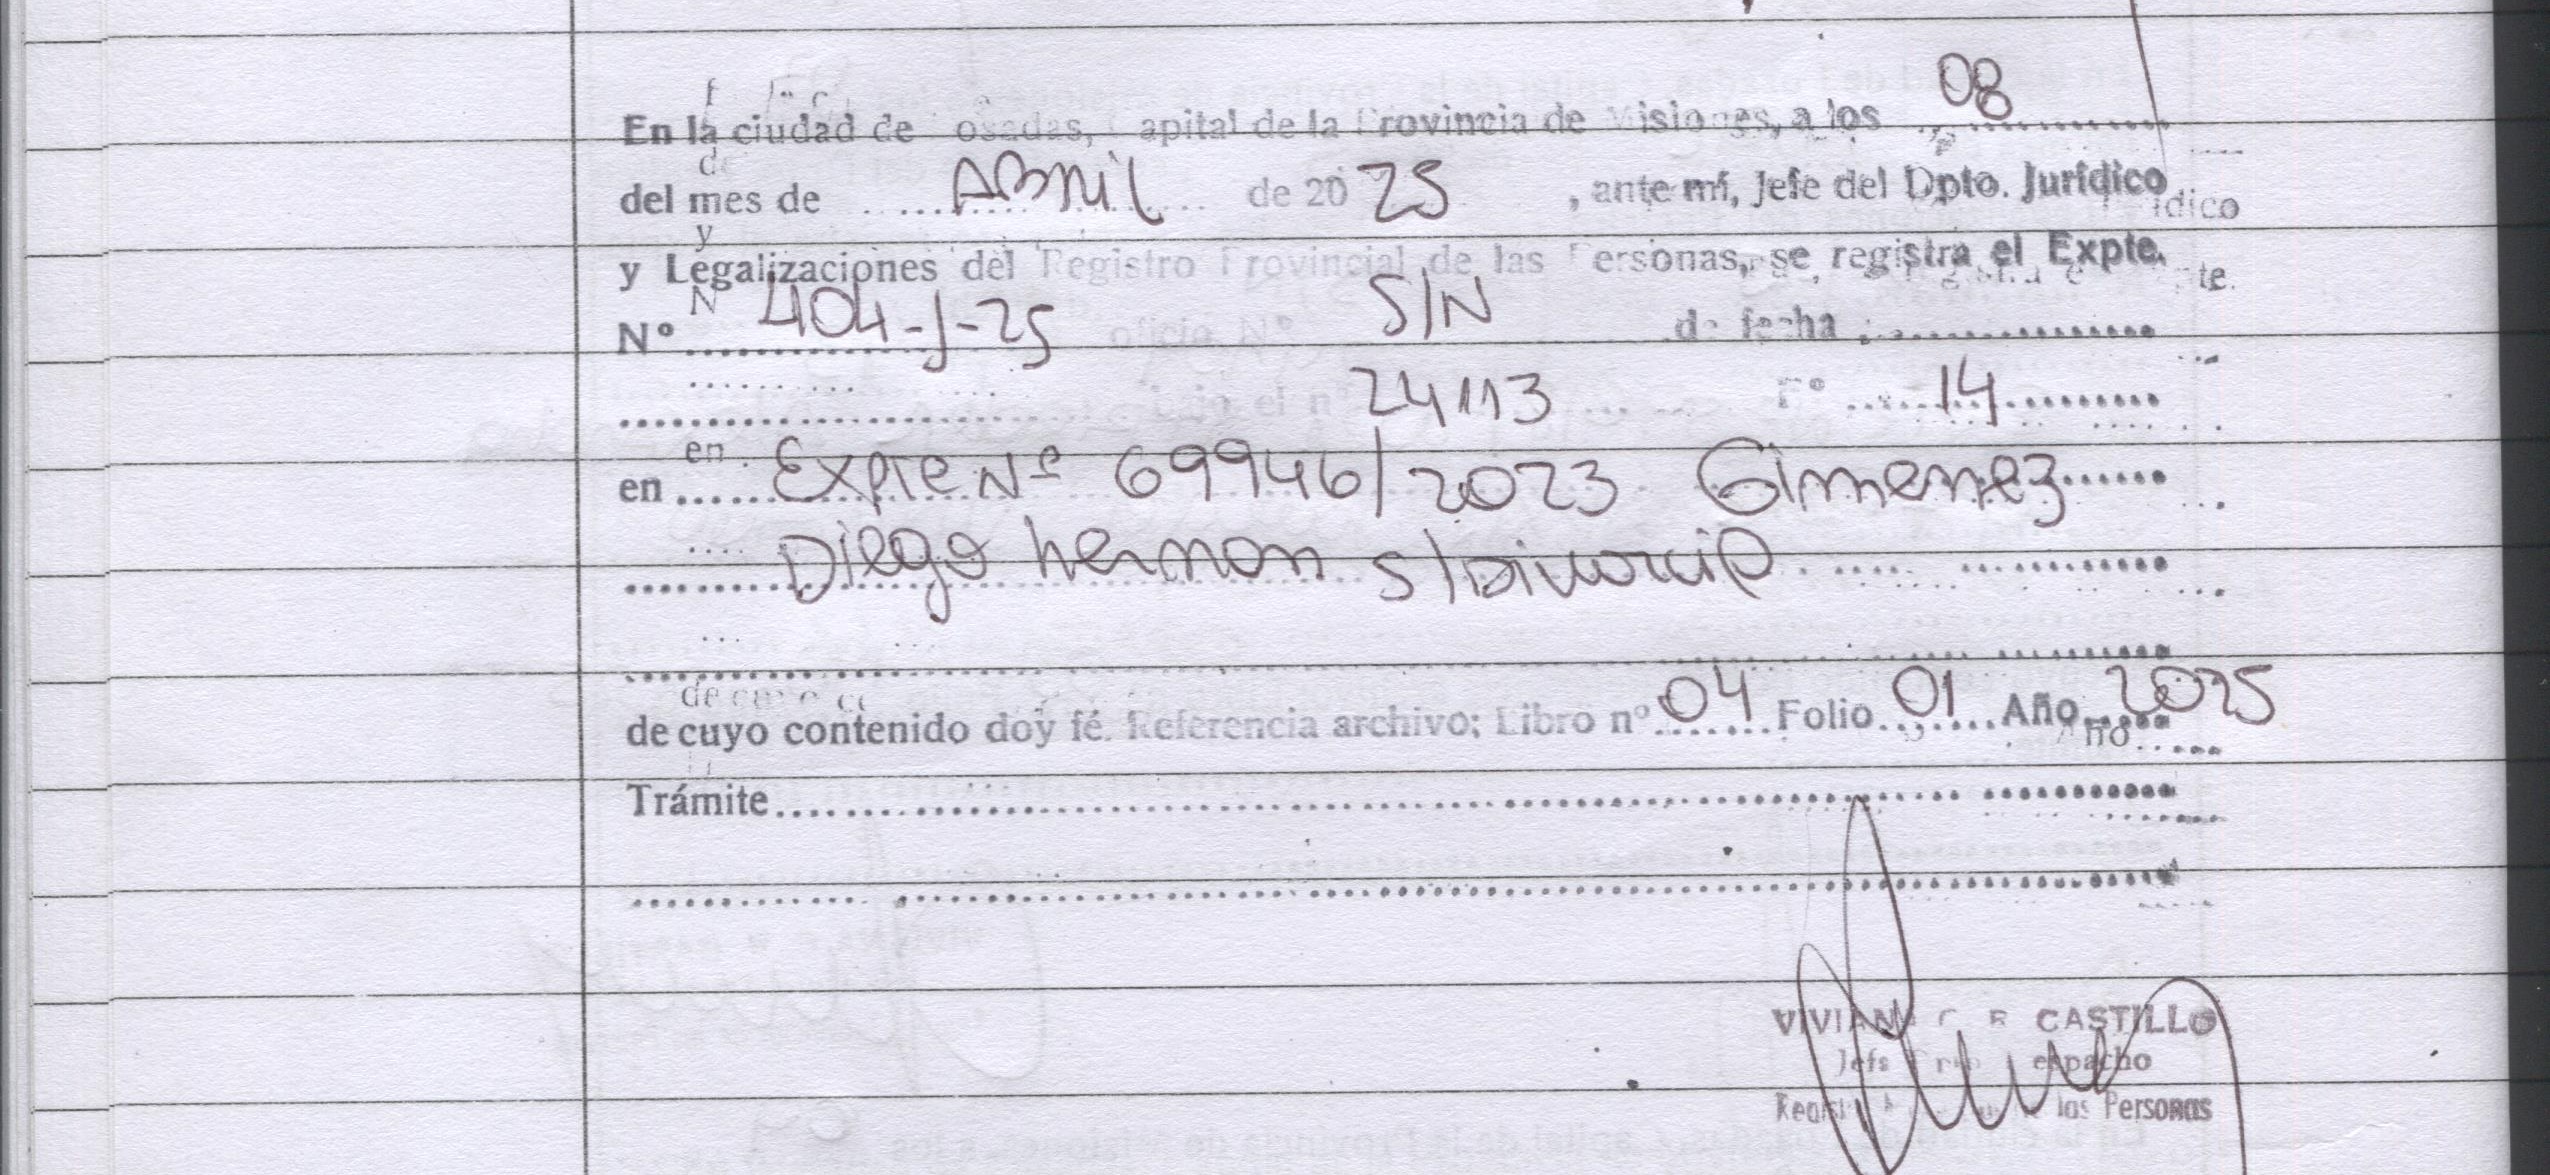 08
En la ciudad de Posadas, Capital de la Provincia de Misiones, a los
del mes de ABril de 20 25, ante mí, Jefe del Dpto. Jurídico
y Legalizaciones del Registro Provincial de las Personas, se registra el Expte.
Nº 404-J-25 oficio Nº S/N de fecha
bajo el nº 24113 Fº 14
en Expte Nº 69946/2023 Gimenez
Diego hernan s/Divorcio
de cuyo contenido doy fé. Referencia archivo: Libro nº 04 Folio 01 Año 2025
Trámite
VIVIANA C. R. CASTILLO
Jefe Dpto. Despacho
de las Personas